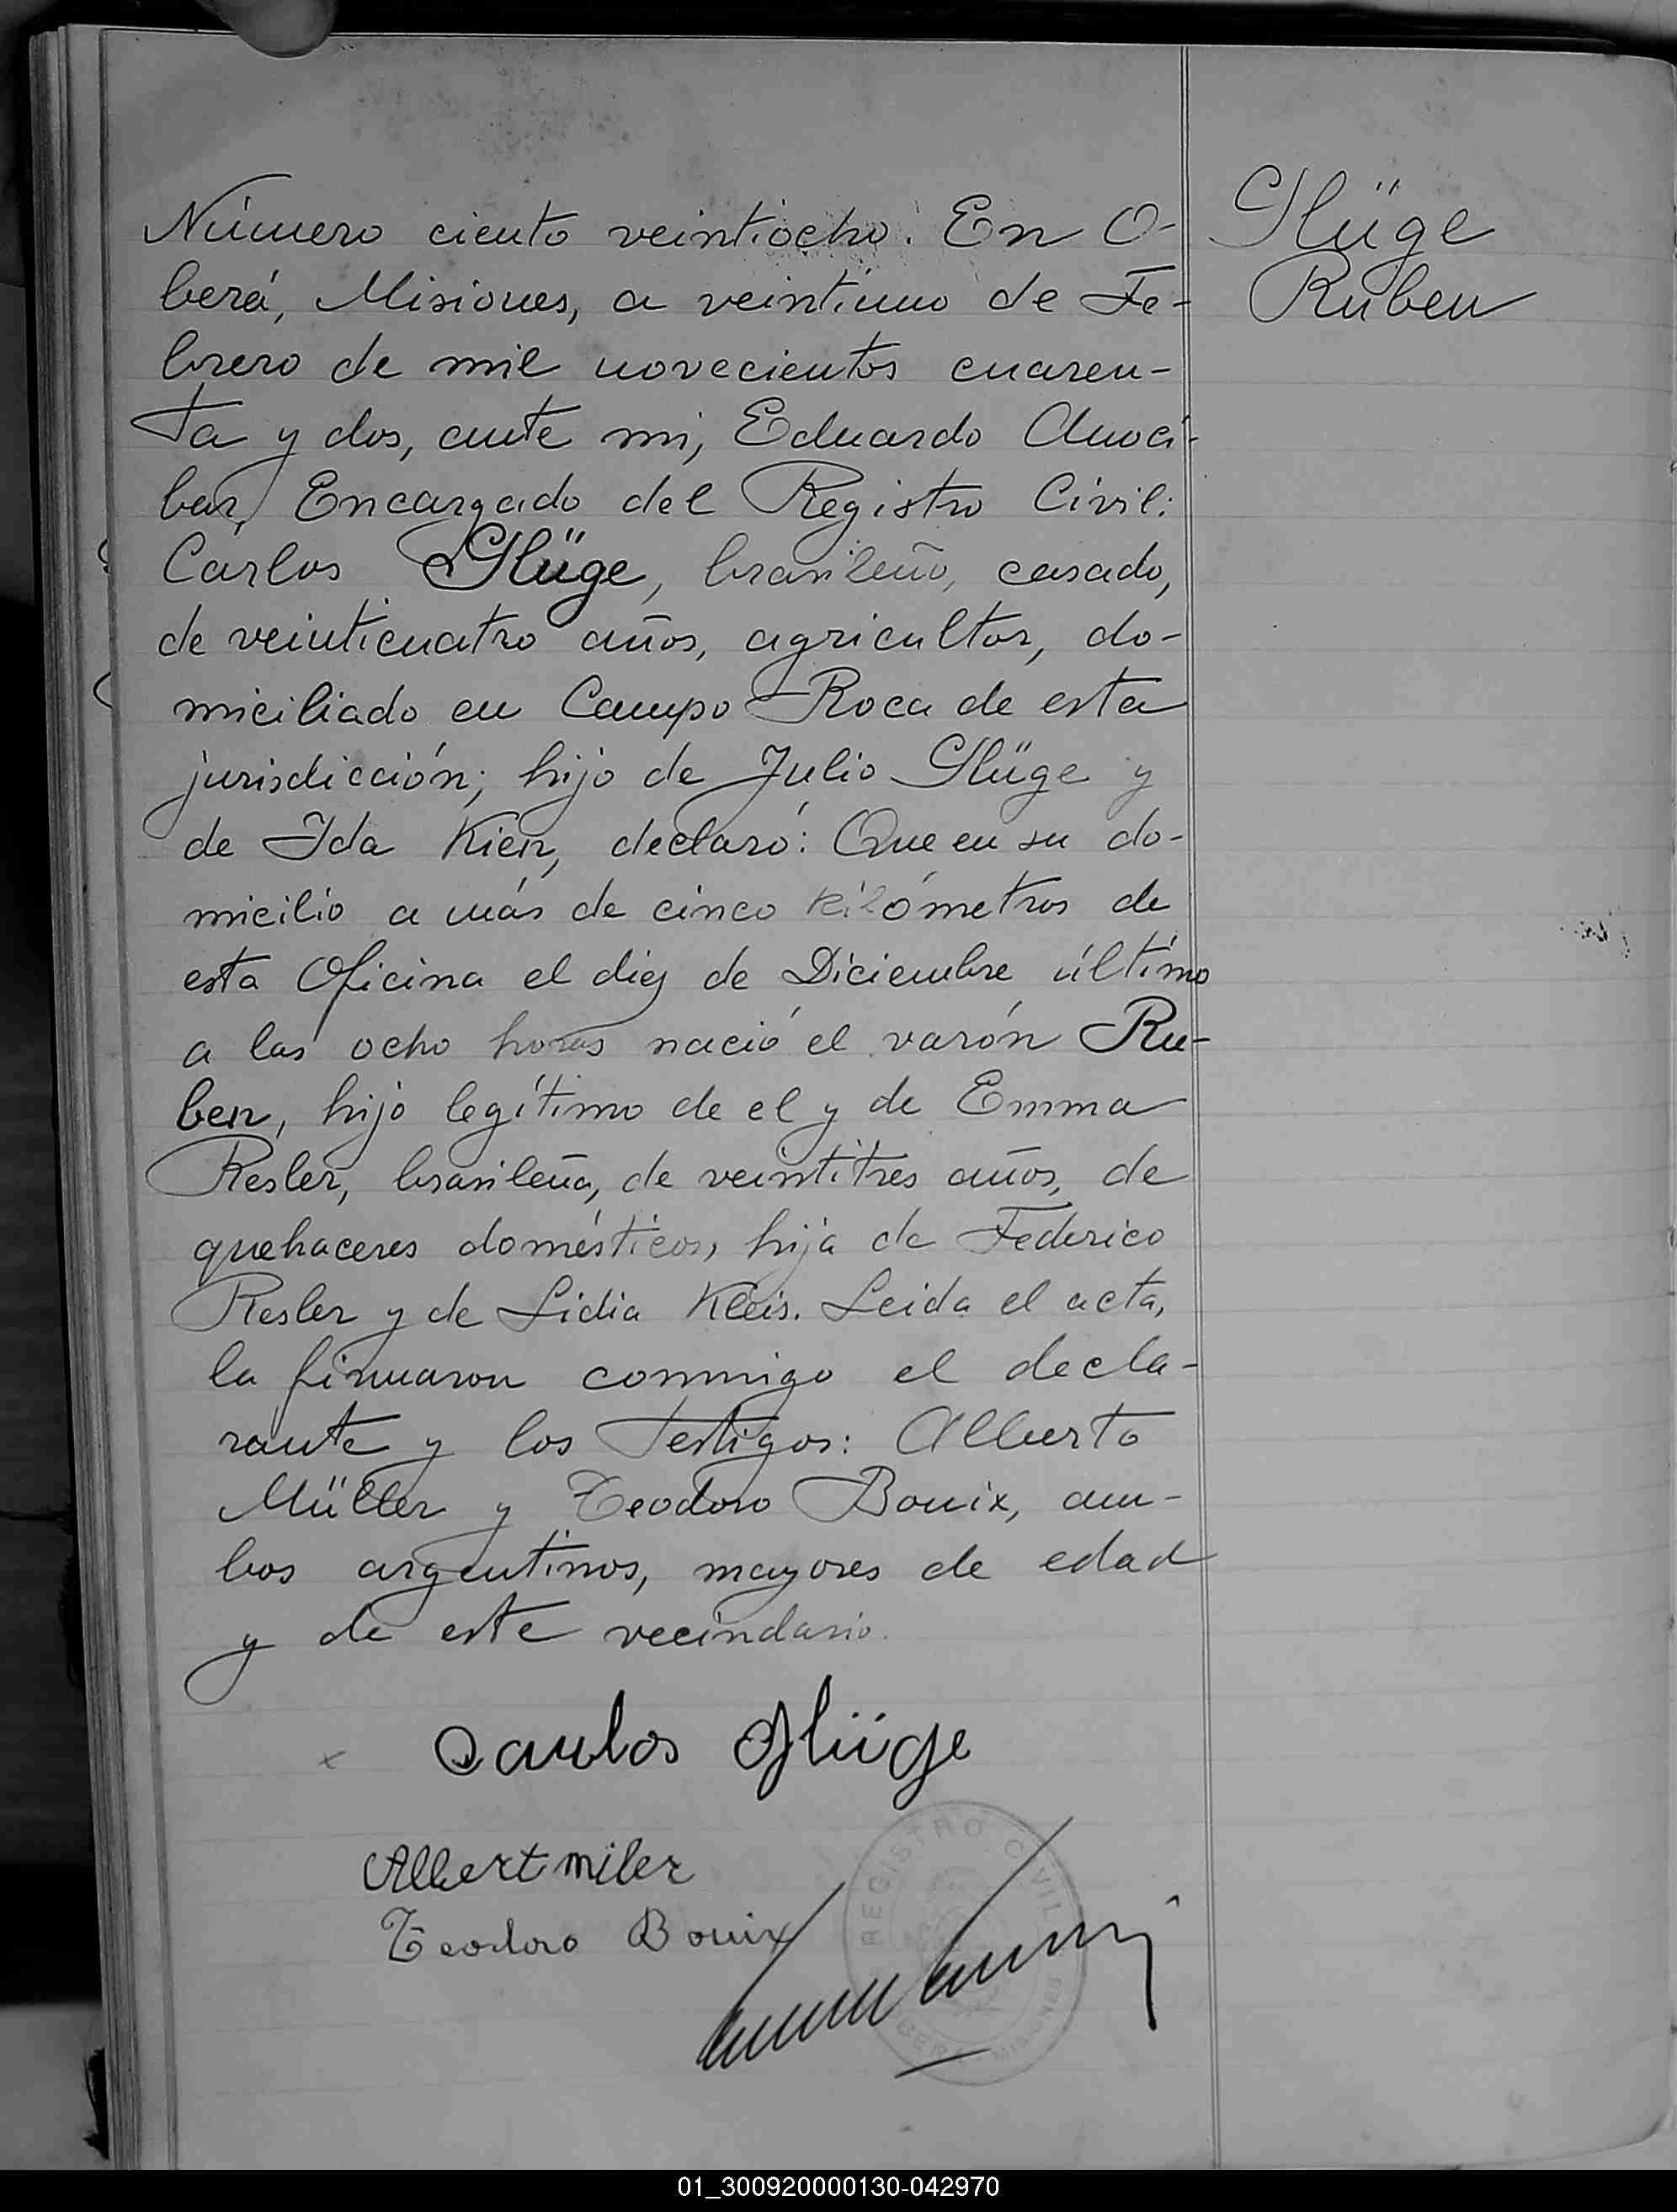 Número ciento veintiocho. En O-
berá, Misiones, a veintiuno de Fe-
brero de mil novecientos cuaren-
ta y dos, ante mi, Eduardo Anoci-
bar, Encargado del Registro Civil:
Carlos Glüge, brasileño, casado,
de veinticuatro años, agricultor, do-
miciliado en Campo Roca de esta
jurisdicción; hijo de Julio Glüge y
de Ida Kien, declaró: Que en su do-
micilio a más de cinco kilómetros de
esta Oficina el diez de Diciembre último
a las ocho horas nació el varón Ru-
ben, hijo legítimo de el y de Emma
Resler, brasileña, de veintitres años, de
quehaceres domésticos, hija de Federico
Resler y de Lidia Kleis. Leida el acta,
la firmaron conmigo el decla-
rante y los testigos: Alberto
Müller y Teodoro Bouix, am-
bos argentinos, mayores de edad
y de este vecindario.
Glüge
Ruben
Carlos Glüge
Albert miler
Teodoro Bouix
REGISTRO CIVIL
OBERA MISIONES
01_300920000130-042970